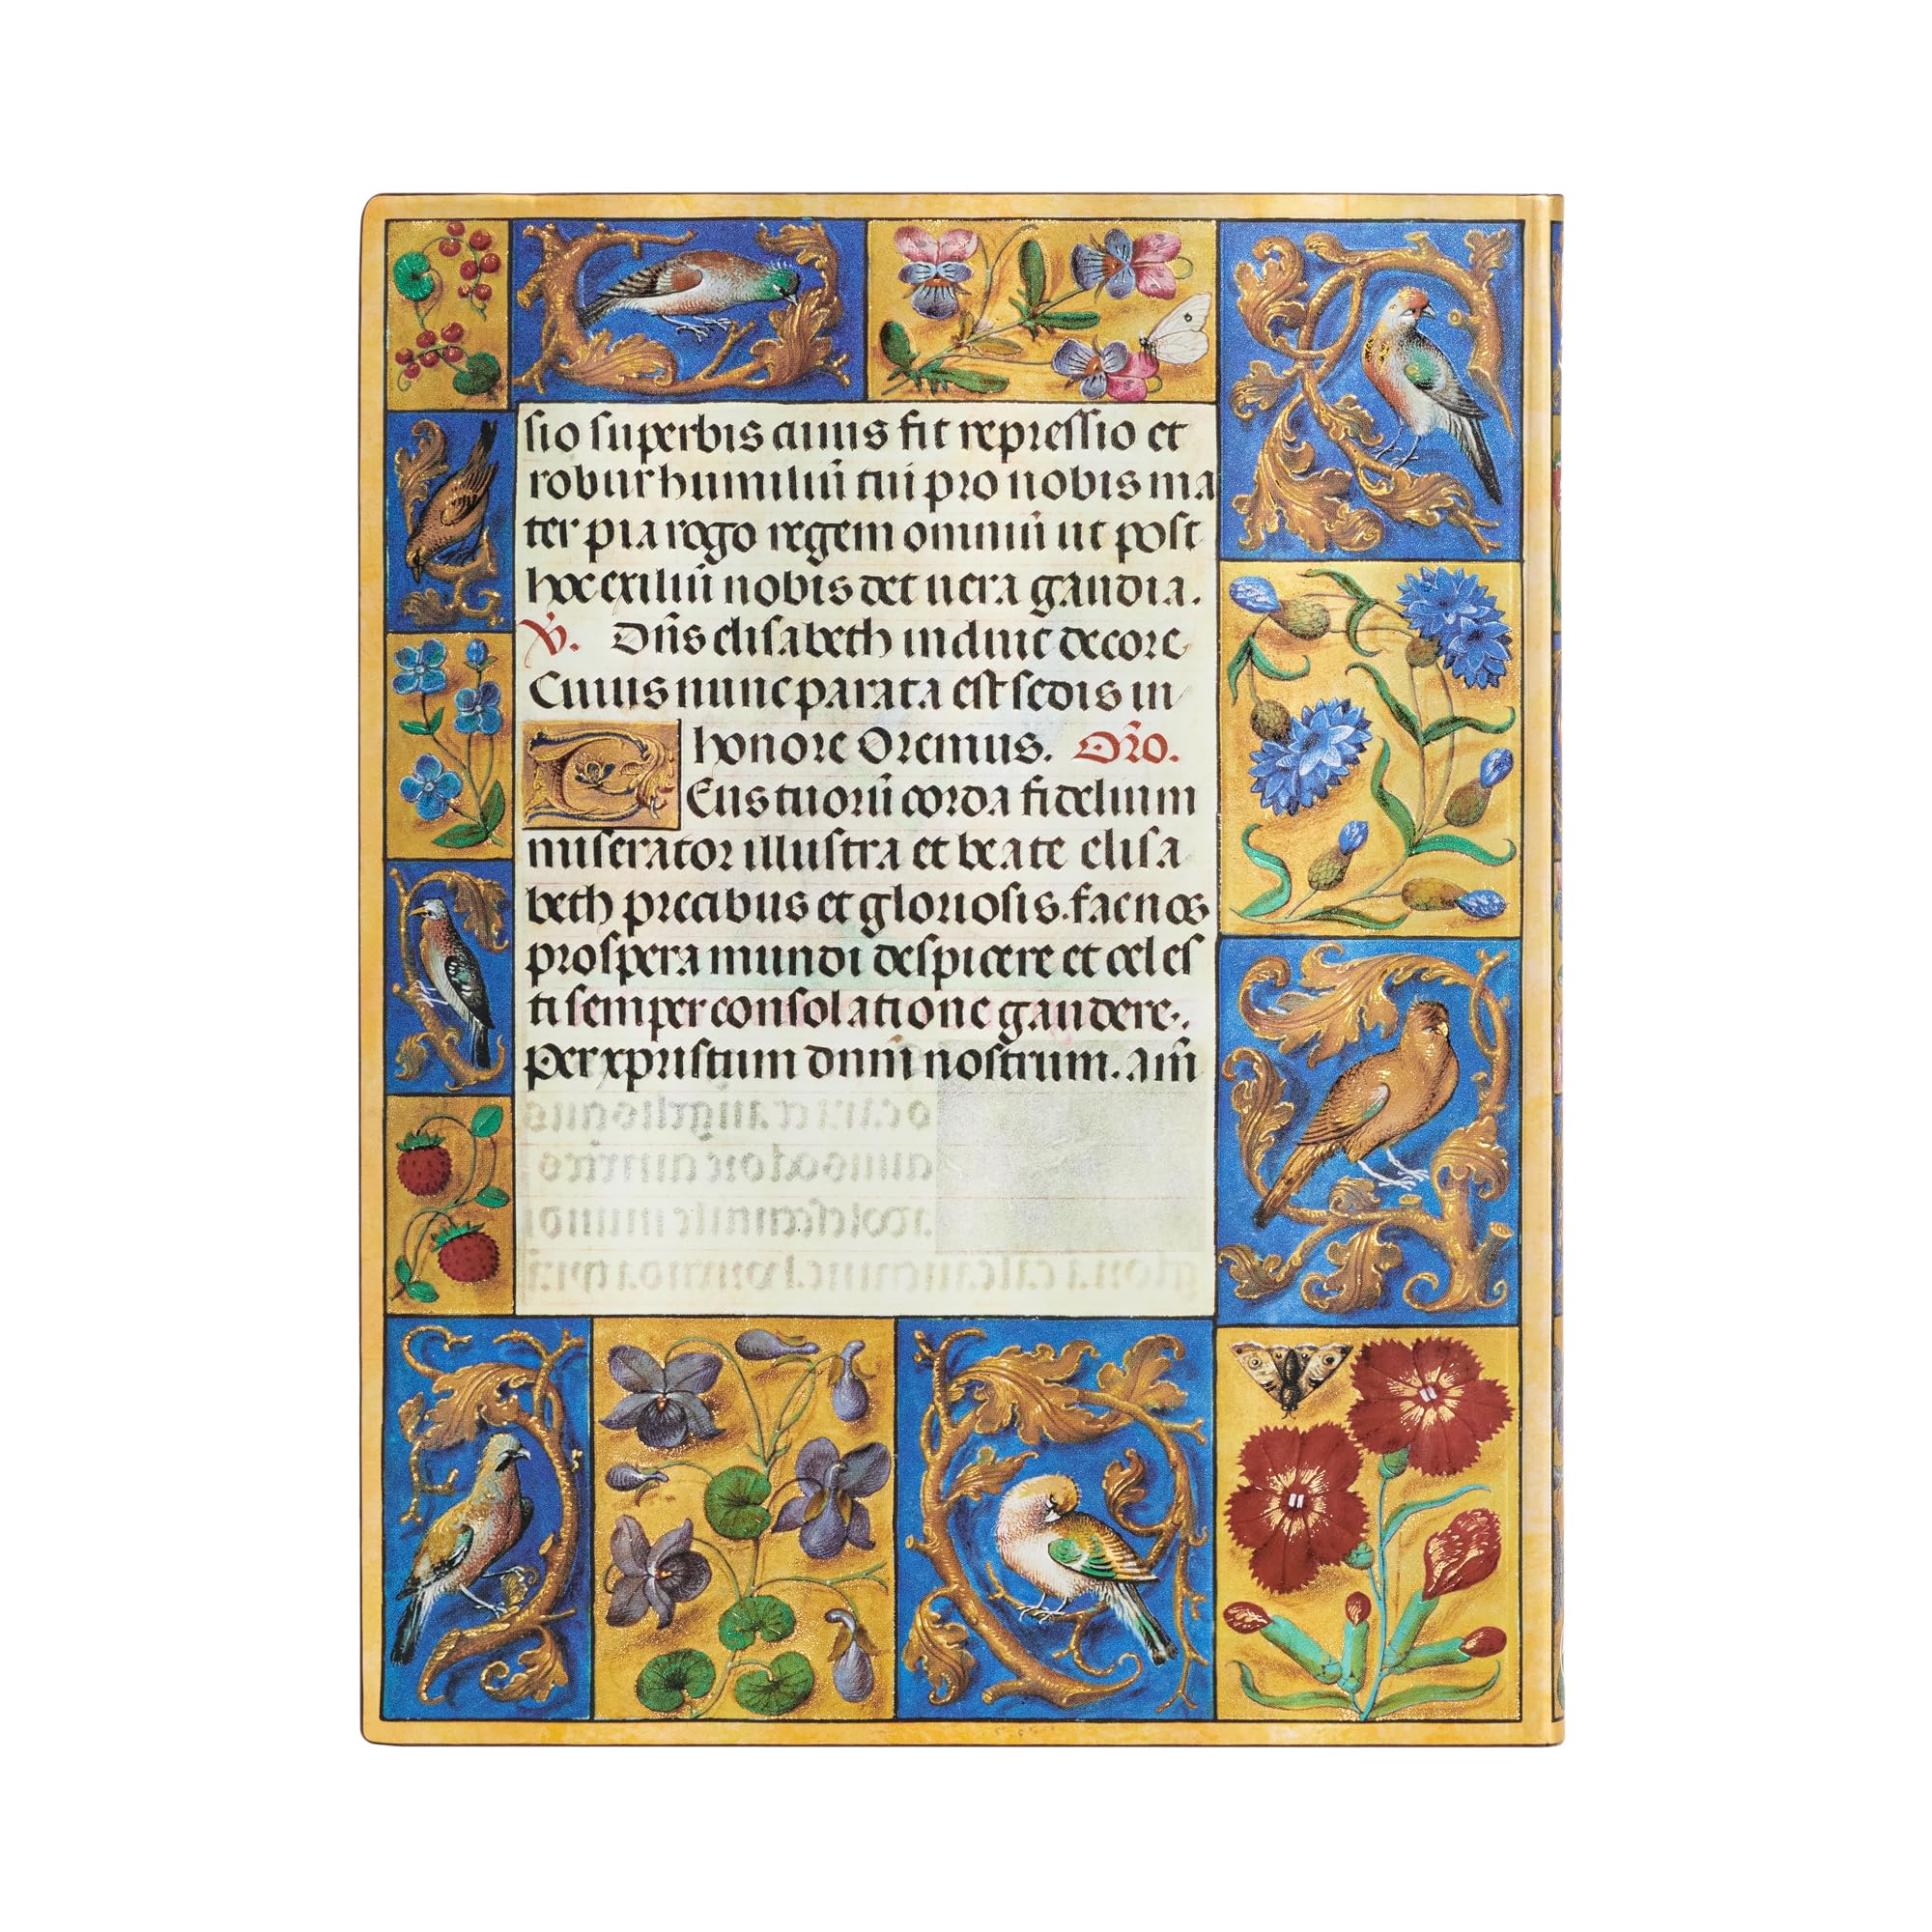 sio superbis cuius fit repressio et
robur humiliū tui pro nobis ma
ter pia rogo regem omniū ut post
hoc exiliū nobis det uera gaudia.
℣. Dn̄s elisabeth induit decore
Cuius nunc parata est sedis in
honore Oremus. Or̄o.
Deus tuorū corda fidelium
miserator illustra et beate elisa
beth precibus et gloriosis. fac nos
prospera mundi despicere et celes
ti semper consolatione gaudere.
Per xpristum dnm̄ nostrum. am̄